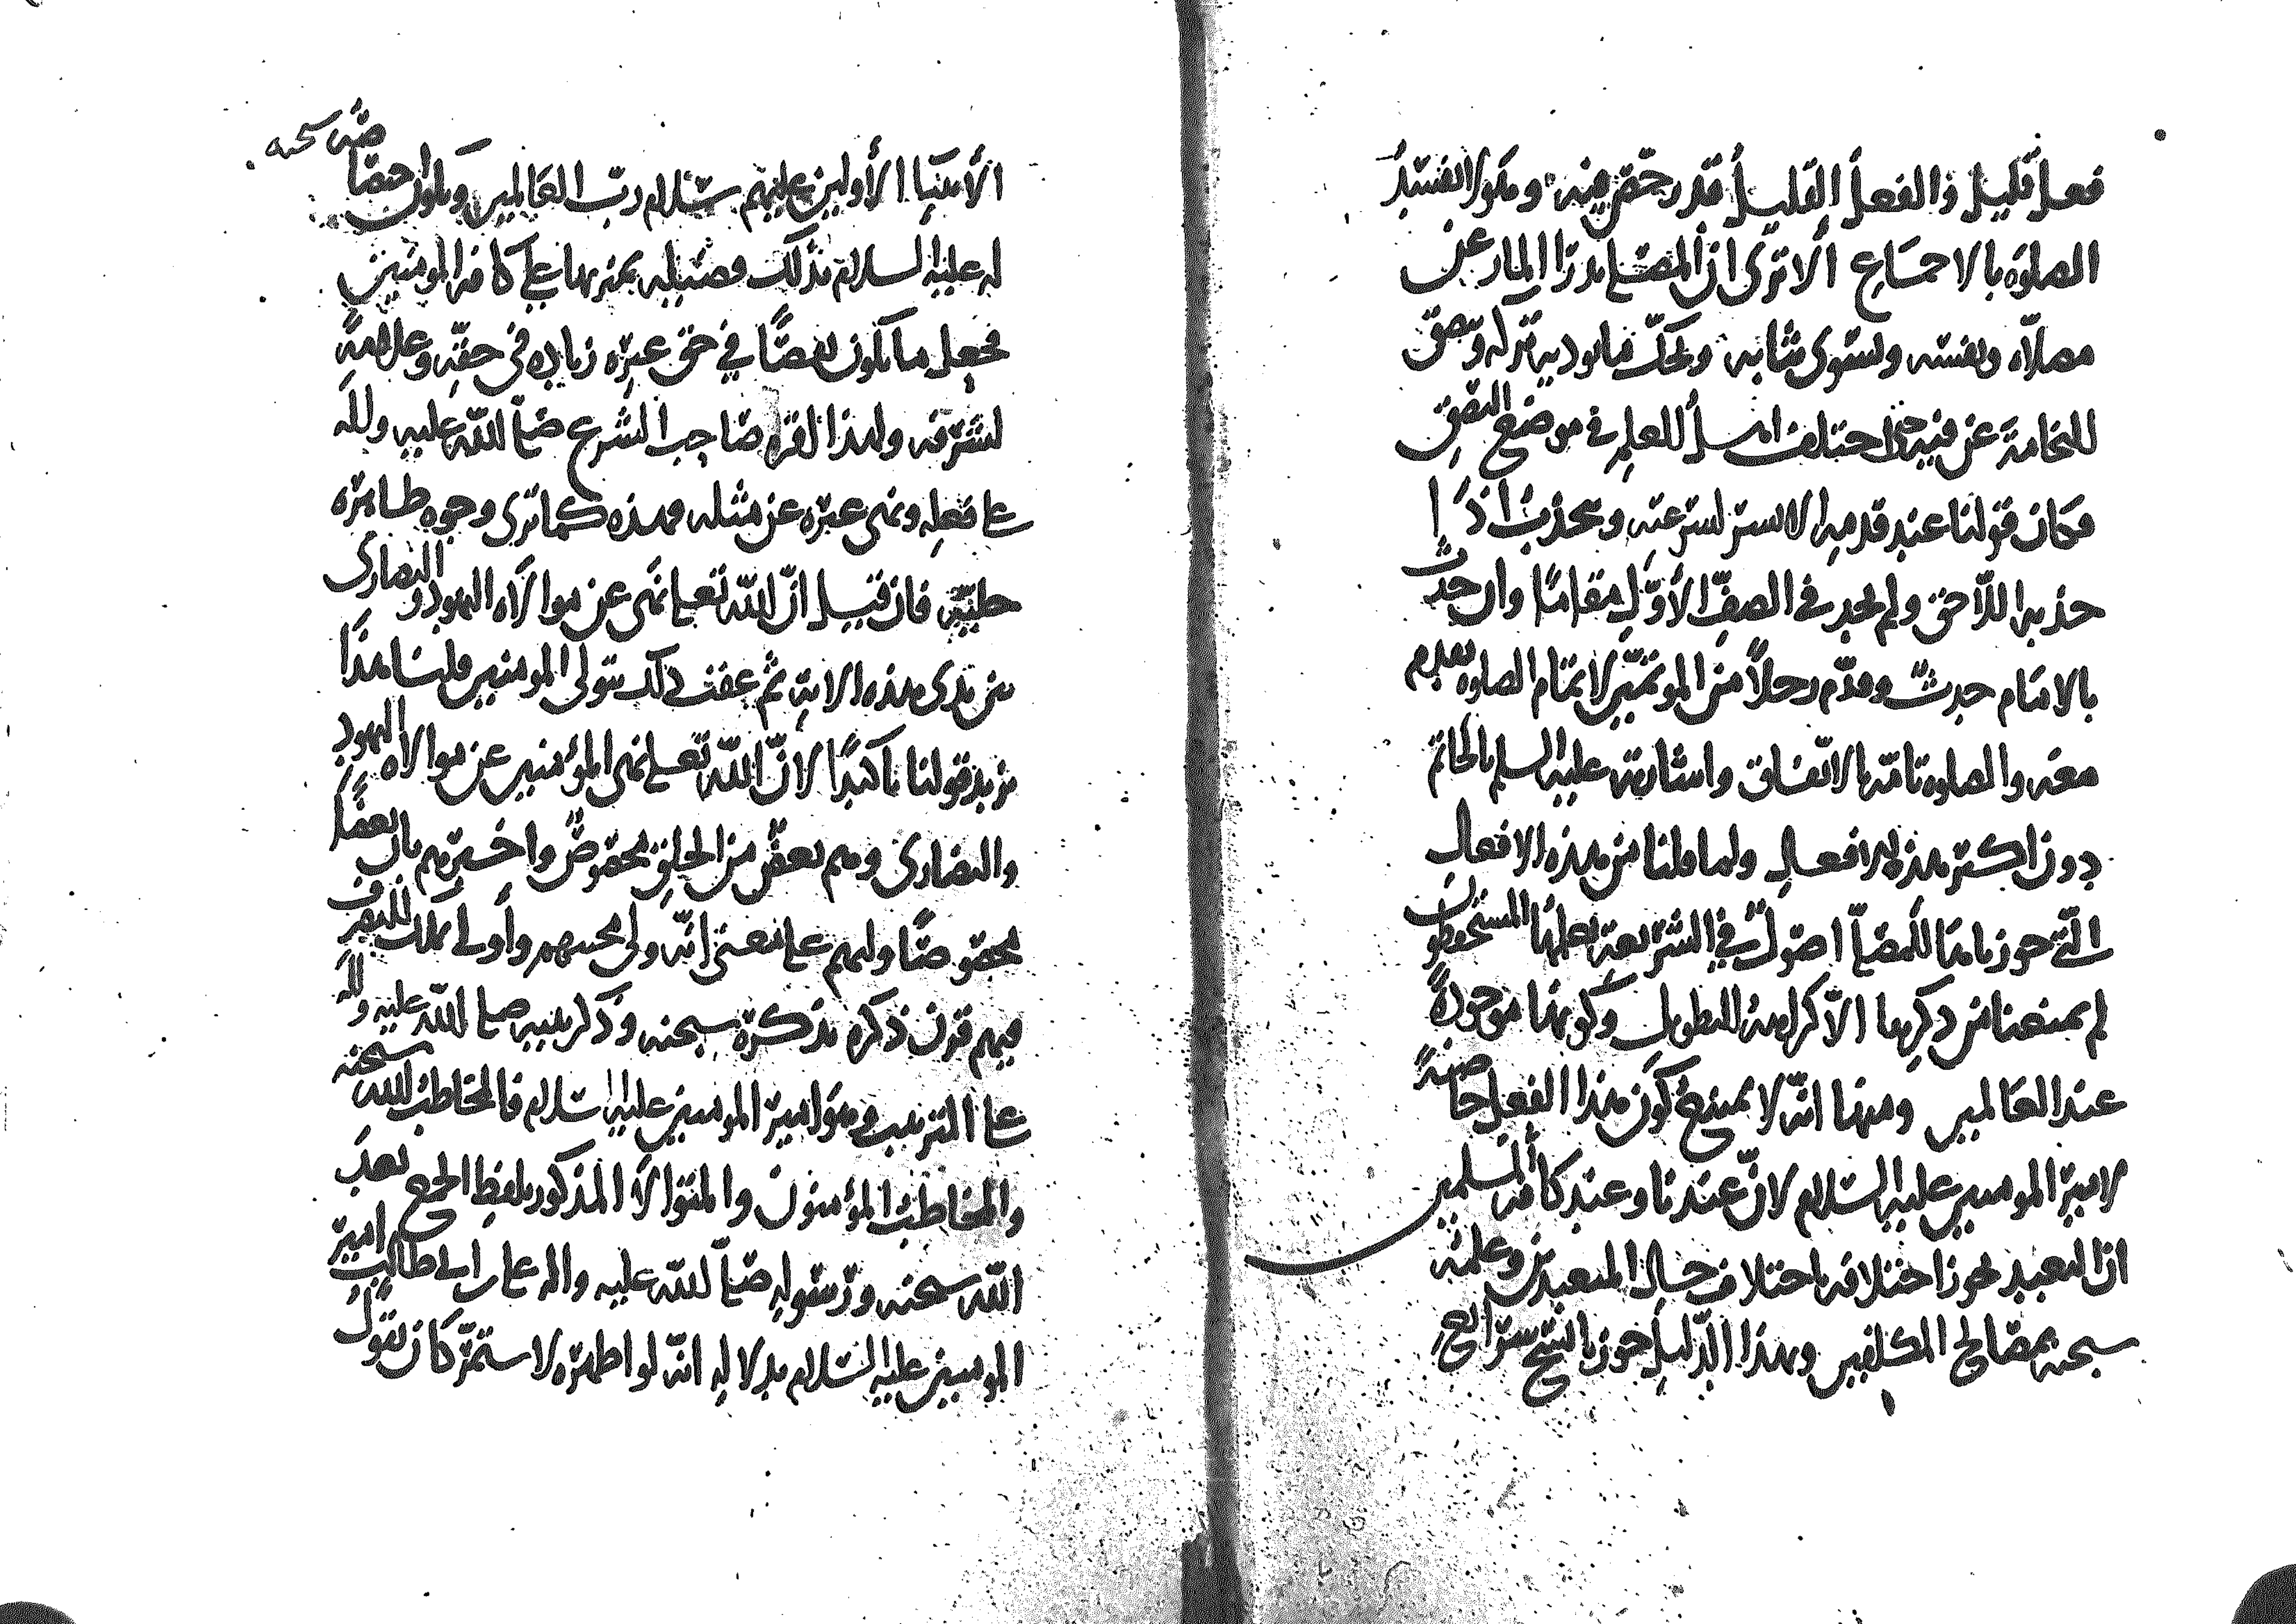 فعل قليل والفعل القليل قد رخص فيه ولا يفسد
الصلوة بالاجماع ألا ترى ان المصلي يدرا المار عن
مصلاه ونفسه ويسوي ثيابه ويحك ما يوذيه تركه ويبصق
للنخامة عن فيه حتى اختلف اهل العلم في موضع البصق
فكان قولنا عند قدميه الايسر عنه ويجذب اذا
جذبه اللاحق ولم يجد في الصف الأول مقاما وان حدث
بالامام حدث وقدم رجلا من الموتمين لاتمام الصلوه تقدم
معه والصلوه تامة بالاتفاق واشارته عليه السلم بالخاتم
دون اكثر هذه الافعال ولما قلنا من هذه الافعال
التي جوزناها للمصلي اصول في الشريعة يعلمها المستحفظون
لم يمنعنا من ذكرها الا كراهة التطويل وكونها موجودة
عند العالمين ومنها انه لا يمتنع كون هذا الفعل خاصة
لامير المومنين عليه السلام لان عندنا وعند كافة المسلمين
ان التعبد يجوز اختلافه باختلاف حال المتعبدين وعلمه
سبحنه بمصالح المكلفين وبهذا الدليل جوزنا نسخ شرائع
الأنبيا الأولين عليهم سلام رب العالمين ويكون اختصاصه سبحنه
له عليه السلام بذلك فضيله يميزه بها على كافة المومنين
فجعل ما يكون نقصا في حق غيره زياده في حقه وعلامة
لشرفه ولهذا اقره صاحب الشرع صلى الله عليه وآله
على فعله ونهى غيره عن مثله فهذه كما ترى وجوه ظاهره
جليه فان قيل ان الله تعلى نهى عن موالاه اليهود والنصارى
بين يدي هذه الاية ثم عقب ذلك بتولي المومنين قلنا هذا
يزيد قولنا تاكيدا لان الله تعلى نهى المؤمنين عن موالاه اليهود
والنصارى وهم بعض من الخلق مخصوص واخبرهم بان بعضا
مخصوصا وليهم على معنى انه ولي محبتهم وأولى بملك التصرف
فيهم قرن ذكره بذكره سبحنه وذكر نبيه صلى الله عليه وآله
على الترتيب وهو امير المومنين عليه السلام فالمخاطب الله سبحنه
والمخاطب المؤمنون والمتولا المذكور بلفظ الجمع بعد
الله سبحنه ورسوله صلى الله عليه واله على بن ابي طالب امير
المومنين عليه السلام بدلالة انه لو اظهره لاستمر كان يقول